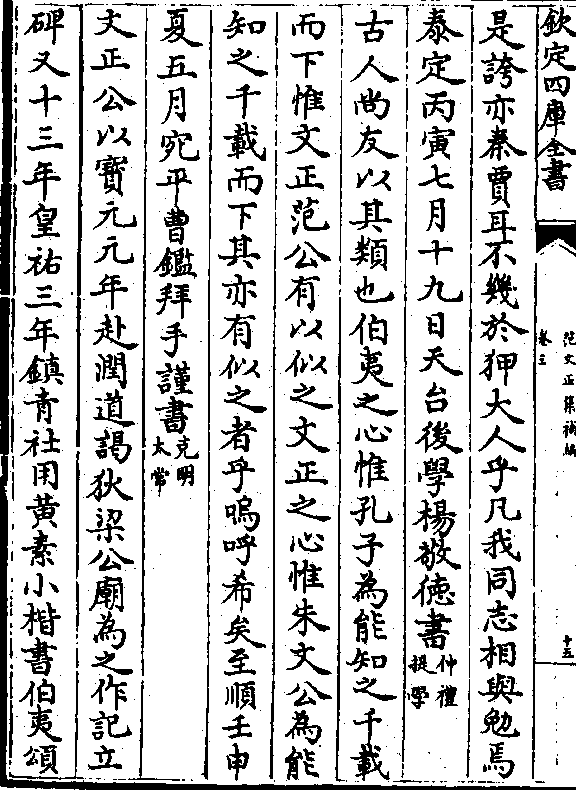 欽定四庫全書
范文正集補編
卷三
十五
是誇亦秦賈耳不幾於狎大人乎凡我同志相與勉焉
泰定丙寅七月十九日天台後學楊敬德書仲禮提學
古人尚友以其類也伯夷之心惟孔子為能知之千載
而下惟文正范公有以似之文正之心惟朱文公為能
知之千載而下其亦有似之者乎嗚呼希矣至順壬申
夏五月宛平曹鑑拜手謹書克明太常
文正公以寳元元年赴潤道謁狄梁公廟為之作記立
碑又十三年皇祐三年鎮青社用黄素小楷書伯夷頌